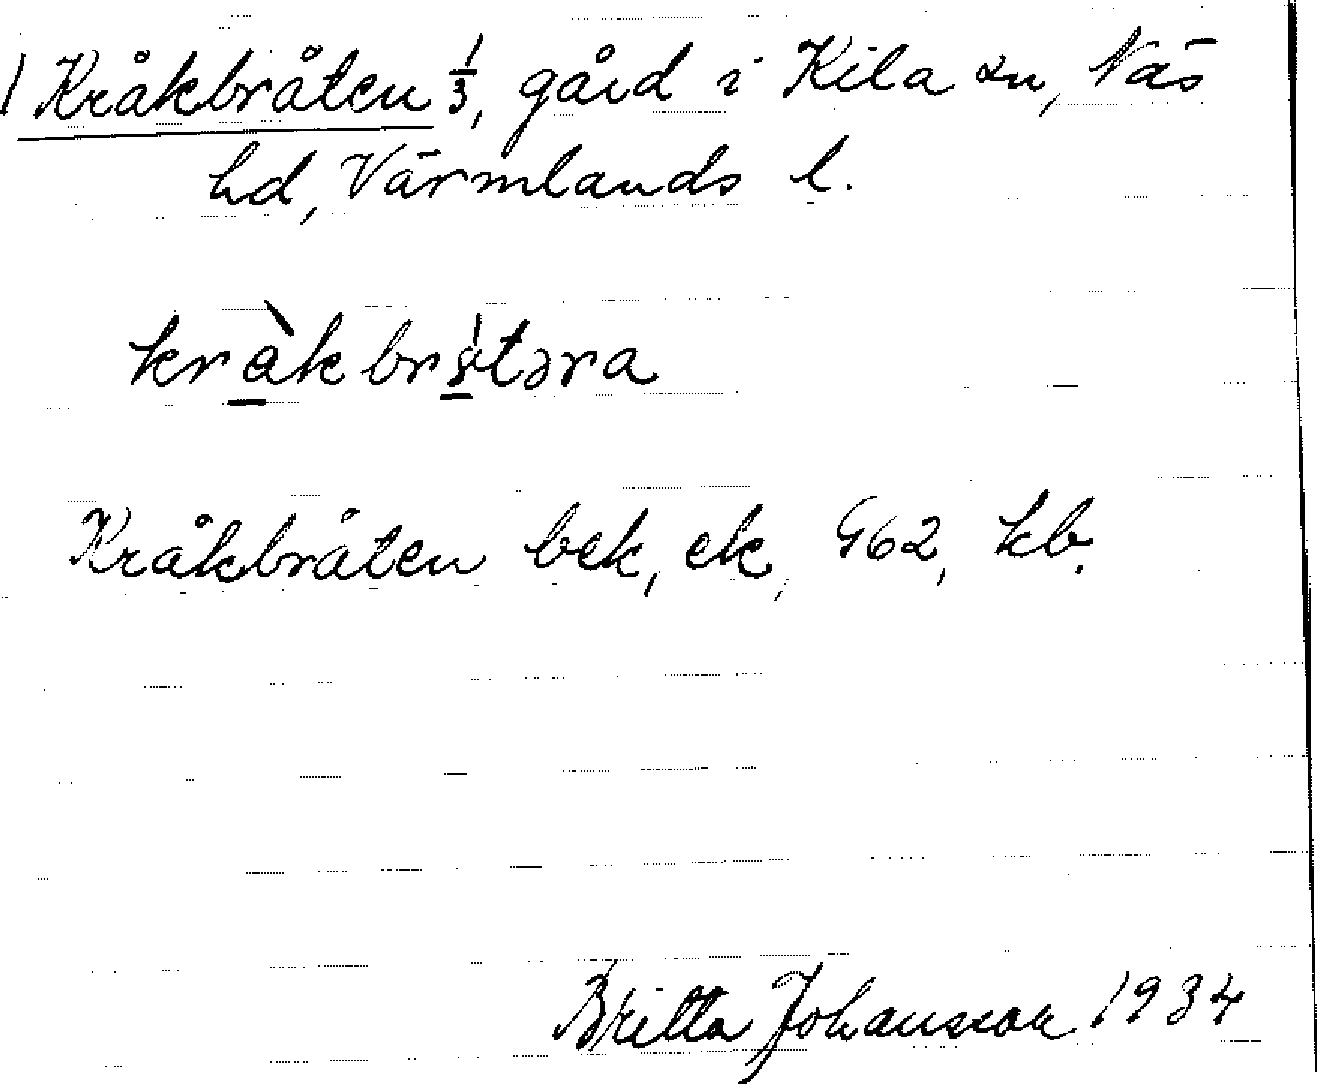 1 Kråkbråten 1/3, gård i Kila sn, Näs
hd, Värmlands l.
Kråkbråten bek, ek, G62, kb.
Britta Johansson 1934